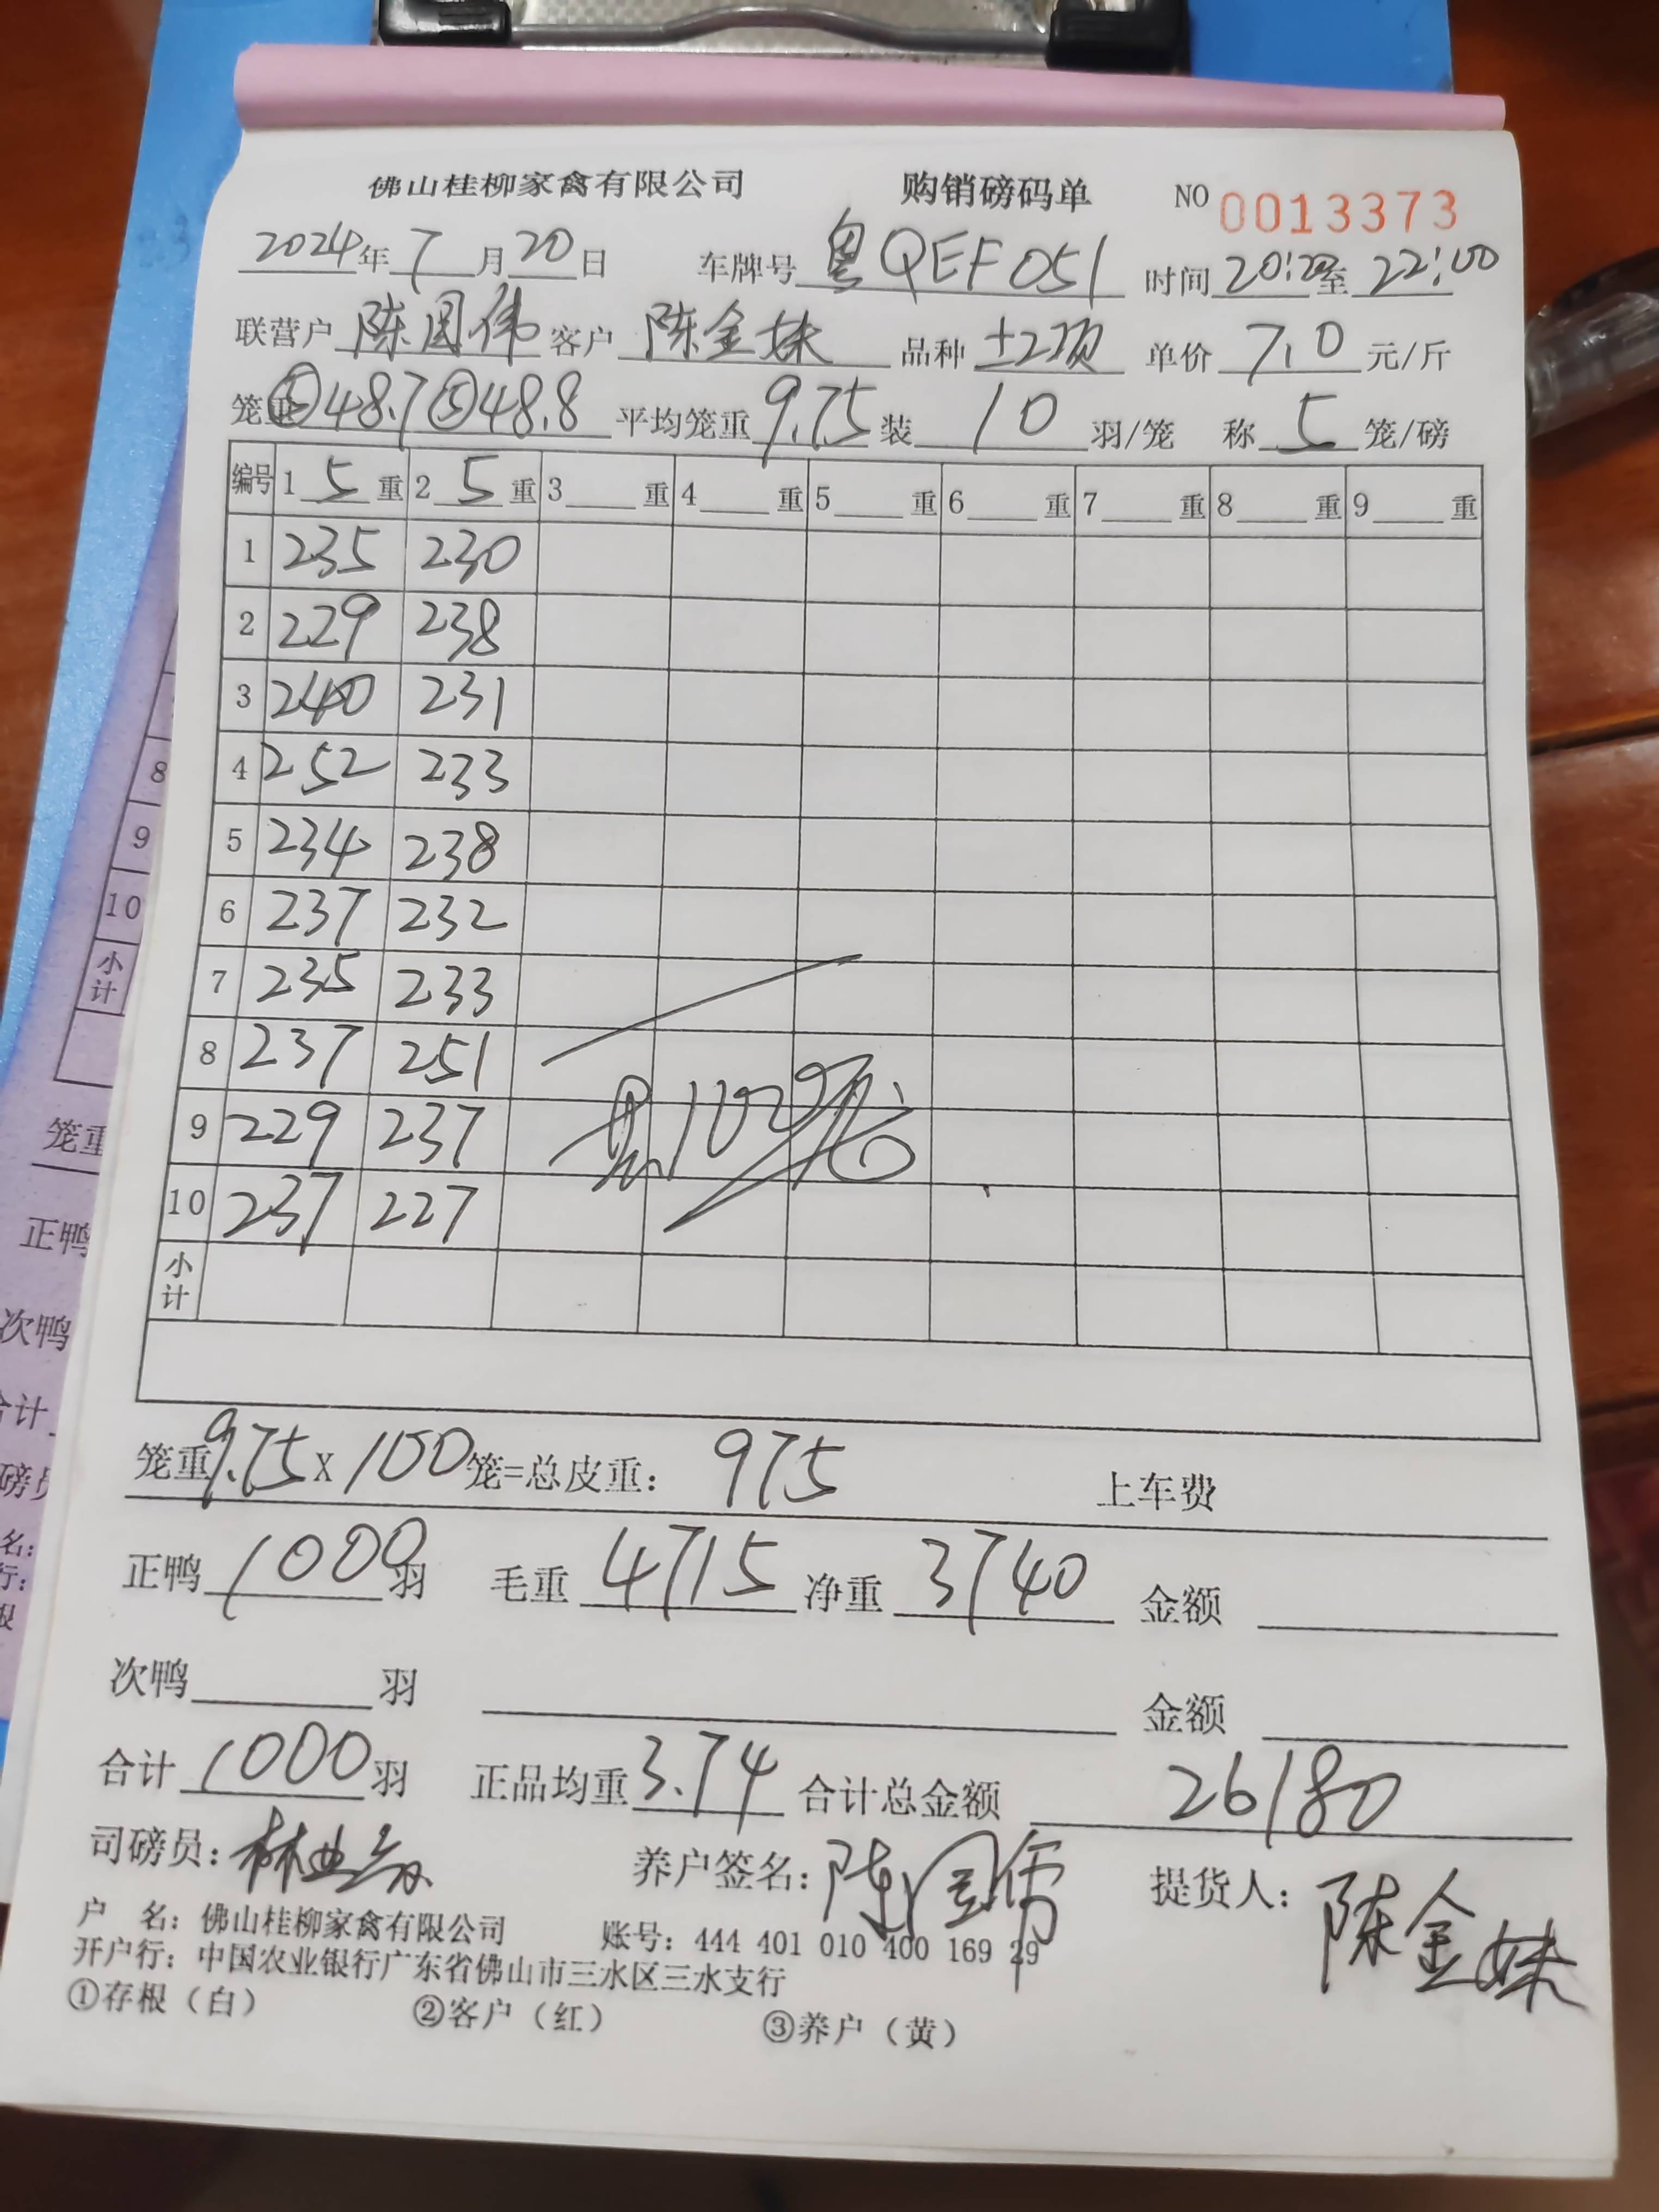 佛山桂柳家禽有限公司 购销磅码单 NO 0013373
2024年7月20日 车牌号 粤QEF051 时间 20:20至22:00
联营户 陈国伟 客户 陈金妹 品种 土2项 单价 7.0 元/斤
笼重⑤48.7⑤48.8 平均笼重9.75装10羽/笼 称5笼/磅
编号 1 5 重 2 5 重 3 重 4 重 5 重 6 重 7 重 8 重 9 重
1 235 230
2 229 238
3 240 231
4 252 233
5 234 238
6 237 232
7 235 233
8 237 251
9 229 237
10 237 227
小计
笼重9.75X100笼=总皮重: 975 上车费
正鸭1000羽 毛重4715净重3740 金额
次鸭 羽 金额
合计1000羽 正品均重3.74 合计总金额 26180
司磅员: 养户签名: 陈国伟 提货人: 陈金妹
户 名: 佛山桂柳家禽有限公司 账号: 444 401 010 400 169 29
开户行: 中国农业银行广东省佛山市三水区三水支行
①存根(白) ②客户(红) ③养户(黄)
8
9
10
小计
笼重
正鸭
次鸭
合计